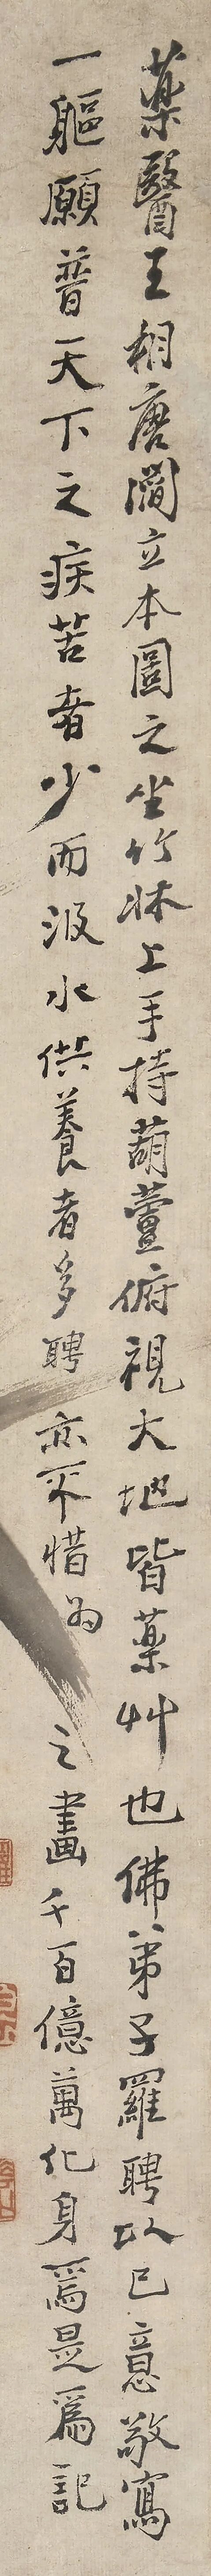 藥醫王相唐閻立本圖之坐竹牀上手持葫蘆俯視大地皆藥艸也佛弟子羅聘以己意敬寫
一軀願普天下之疾苦者少而汲水供養者多聘亦不惜為之畫千百億萬化身焉是爲記